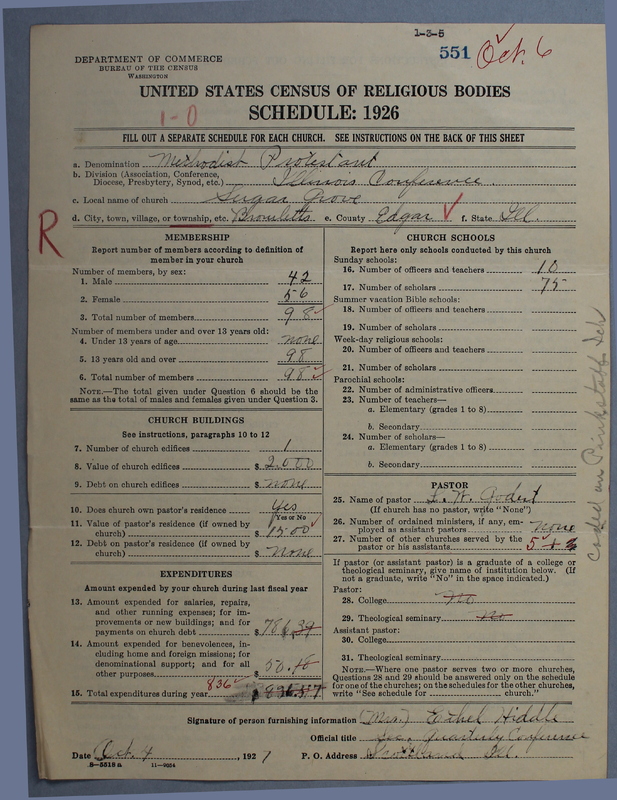 1-3-5
551 Oct. 6
DEPARTMENT OF COMMERCE
BUREAU OF THE CENSUS
WASHINGTON
UNITED STATES CENSUS OF RELIGIOUS BODIES
1-0
SCHEDULE: 1926
FILL OUT A SEPARATE SCHEDULE FOR EACH CHURCH. SEE INSTRUCTIONS ON THE BACK OF THIS SHEET
a. Denomination Methodist Protestant
b. Division (Association, Conference,
Diocese, Presbytery, Synod, etc.) Illinois Conference
c. Local name of church Sugar Grove
d. City, town, village, or township, etc. e. County Edgar f. State Ill.
R
MEMBERSHIP
Report number of members according to definition of
member in your church
Number of members, by sex:
1. Male 42
2. Female 56
3. Total number of members 98
Number of members under and over 13 years old:
4. Under 13 years of age none
5. 13 years old and over 98
6. Total number of members 98
NOTE.—The total given under Question 6 should be the
same as the total of males and females given under Question 3.
CHURCH BUILDINGS
See instructions, paragraphs 10 to 12
7. Number of church edifices 1
8. Value of church edifices $ 2000
9. Debt on church edifices $ none
10. Does church own pastor's residence? Yes
Yes or No
11. Value of pastor's residence (if owned by
church) $ 1500
12. Debt on pastor's residence (if owned by
church) $ None
EXPENDITURES
Amount expended by your church during last fiscal year
13. Amount expended for salaries, repairs,
and other running expenses; for im-
provements or new buildings; and for
payments on church debt $ 786.39
14. Amount expended for benevolences, in-
cluding home and foreign missions; for
denominational support; and for all
other purposes $
836
15. Total expenditures during year
CHURCH SCHOOLS
Report here only schools conducted by this church
Sunday schools:
16. Number of officers and teachers 10
17. Number of scholars 75
Summer vacation Bible schools:
18. Number of officers and teachers
19. Number of scholars
Week-day religious schools:
20. Number of officers and teachers
21. Number of scholars
Parochial schools:
22. Number of administrative officers
23. Number of teachers—
a. Elementary (grades 1 to 8)
b. Secondary
24. Number of scholars—
a. Elementary (grades 1 to 8)
b. Secondary
PASTOR
25. Name of pastor
(If church has no pastor, write "None")
26. Number of ordained ministers, if any, em-
ployed as assistant pastors none
27. Number of other churches served by the
pastor or his assistants 5
If pastor (or assistant pastor) is a graduate of a college or
theological seminary, give name of institution below. (If
not a graduate, write "No" in the space indicated.)
Pastor:
28. College no
29. Theological seminary no
Assistant pastor:
30. College
31. Theological seminary
NOTE.—Where one pastor serves two or more churches,
Questions 28 and 29 should be answered only on the schedule
for one of the churches; on the schedules for the other churches,
write "See schedule for church."
Signature of person furnishing information (Mrs.) Ethel Hiddle
Official title Sec. Quarterly Conference
Date Oct. 4 1927 P. O. Address Ill.
8-5518 a 11-9054